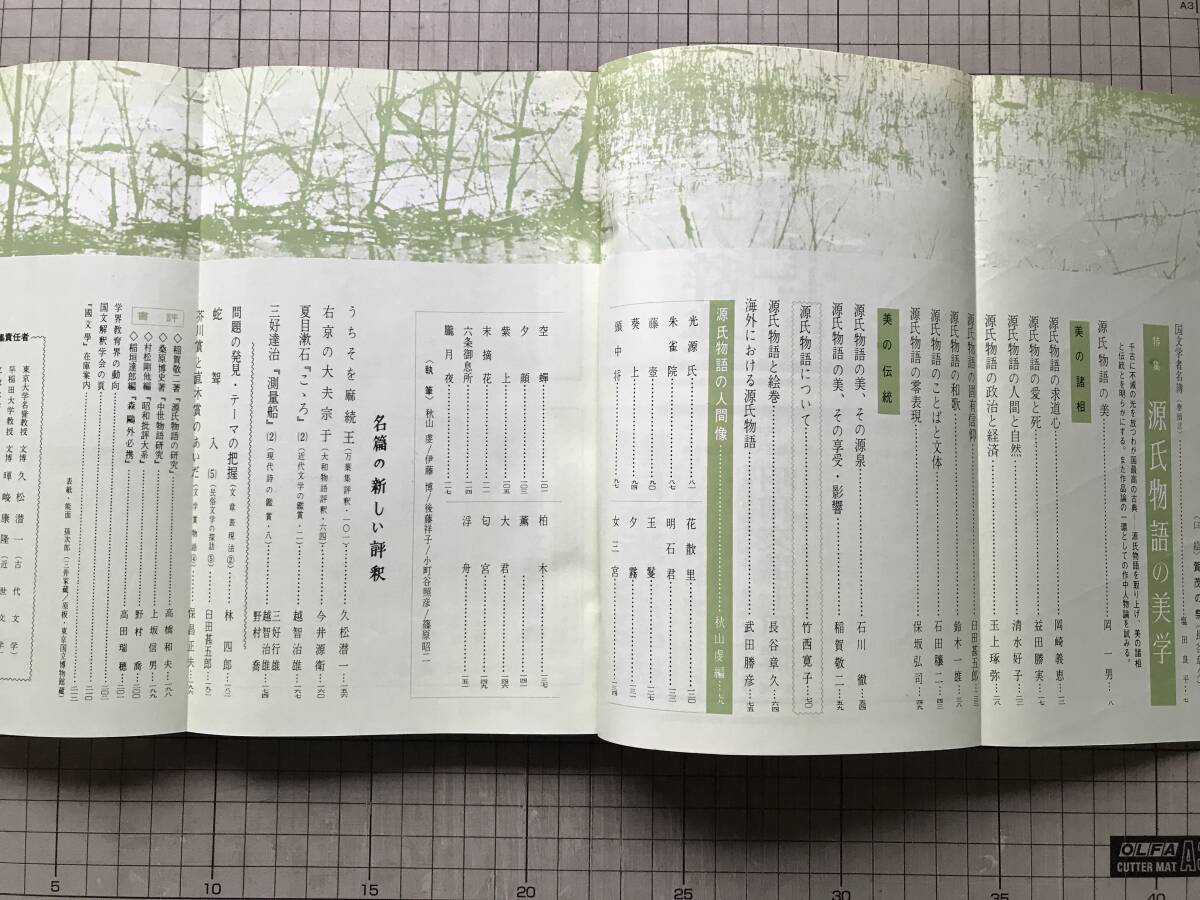 国文学者名簿(巻頭言) 塩田良平…七
特集 源氏物語の美学
千古に不滅の光を放つわが国最高の古典――源氏物語を取り上げ、美の諸相
と伝統とを明らかにする。また作品論の一環としての作中人物論を試みる。
源氏物語の美……岡一男…八
美の諸相
源氏物語の求道心……岡崎義恵…一二
源氏物語の愛と死……益田勝実…一七
源氏物語の人間と自然……清水好子…二三
源氏物語の政治と経済……玉上琢弥…二八
源氏物語の固有信仰……臼田甚五郎…三三
源氏物語の和歌……鈴木一雄…三八
源氏物語のことばと文体……石田穣二…四三
源氏物語の零表現……保坂弘司…四九
美の伝統
源氏物語の美、その源泉……石川徹…五四
源氏物語の美、その享受・影響……稲賀敬二…五九
源氏物語について……竹西寛子…七〇
源氏物語と絵巻……長谷章久…六四
海外における源氏物語……武田勝彦…七五
源氏物語の人間像……秋山虔編…七九
光源氏……八一
朱雀院……八七
藤壺……九〇
葵上……九三
頭中将……九七
花散里……一二〇
明石君……一二三
玉鬘……一二七
夕霧……一三一
女三宮……一三四
空蟬……一〇一
夕顔……一〇三
紫上……一〇五
末摘花……一一一
六条御息所……一一四
朧月夜……一一七
柏木……一三七
薫……一四一
大君……一四六
匂宮……一四九
浮舟……一五一
(執筆) 秋山虔/伊藤博/後藤祥子/小町谷照彦/篠原昭二
名篇の新しい評釈
うちそを麻続王(万葉集評釈・一〇一)……久松潜一…一五六
右京の大夫宗于(大和物語評釈・六四)……今井源衛…一六〇
夏目漱石『こゝろ』(2)(近代文学の鑑賞・二)……越智治雄…一六七
三好達治『測量船』(2)(現代詩の鑑賞・八)……三好行雄 越智治雄 野村喬…一七四
問題の発見・テーマの把握(文章表現法②)……林四郎…一八三
蛇聟入(5)(民俗文学の探訪⑤)……臼田甚五郎…一九二
芥川賞と直木賞のあいだ(文学賞物語④)……保昌正夫…一九六
書評
◇稲賀敬二著『源氏物語の研究』……高橋和夫…一九八
◇桑原博史著『中世物語研究』……上坂信男…一九九
◇村松剛他編『昭和批評大系』……野村喬…二〇〇
◇稲垣達郎編『森鷗外必携』……高田瑞穂…二〇一
学界教育界の動向……二〇二
国文解釈学会の頁……二一〇
『國文學』在庫案内……二一二
表紙・能面 孫次郎(三井家蔵)/原板・東京国立博物館蔵
責任者
東京大学名誉教授 文博 久松潜一(古代文学)
早稲田大学教授 文博 暉峻康隆(近世文学)
5
10
15
20
25
30
35
40
A3
OLFA
CUTTER MAT A3